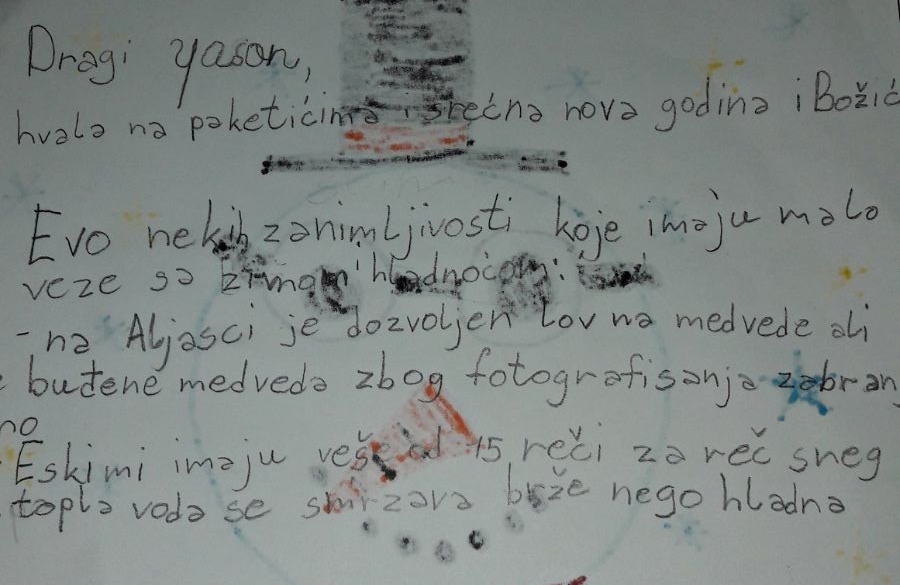 Dragi Yason,
hvala na paketićima i srećna nova godina i Božić
Evo nekih zanimljivosti koje imaju malo
veze sa zimom i hladnoćom:
- na Aljasci je dozvoljen lov na medvede ali
buđene medveda zbog fotografisanja zabran
no
Eskimi imaju veše od 15 reči za reč sneg
topla voda se smrzava brže nego hladna